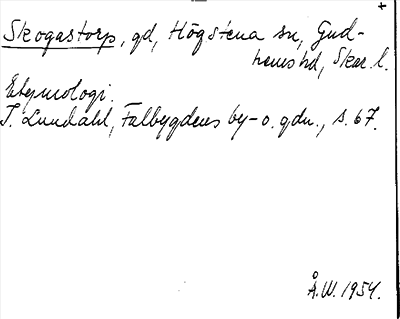 Skogastorp, gd, Högstena sn, Gud-
hems hd, Skar. l.
Etymologi.
I. Lundahl, Falbygdens by- o. gdn., s. 67.
Å.W. 1954.